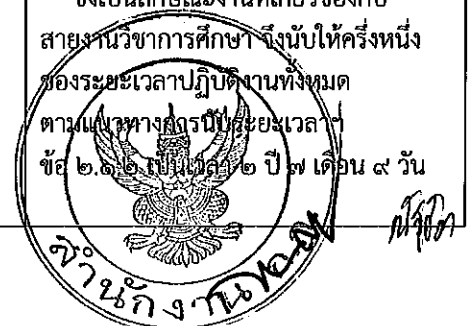 ซึ่งเป็นลักษณะงานที่เกี่ยวข้องกับ
สายงานวิชาการศึกษา จึงนับให้ครึ่งหนึ่ง
ของระยะเวลาปฏิบัติงานทั้งหมด
ตามแนวทางการนับระยะเวลาฯ
ข้อ ๒.๑.๒ เป็นเวลา ๒ ปี ๗ เดือน ๙ วัน
สำนักงาน